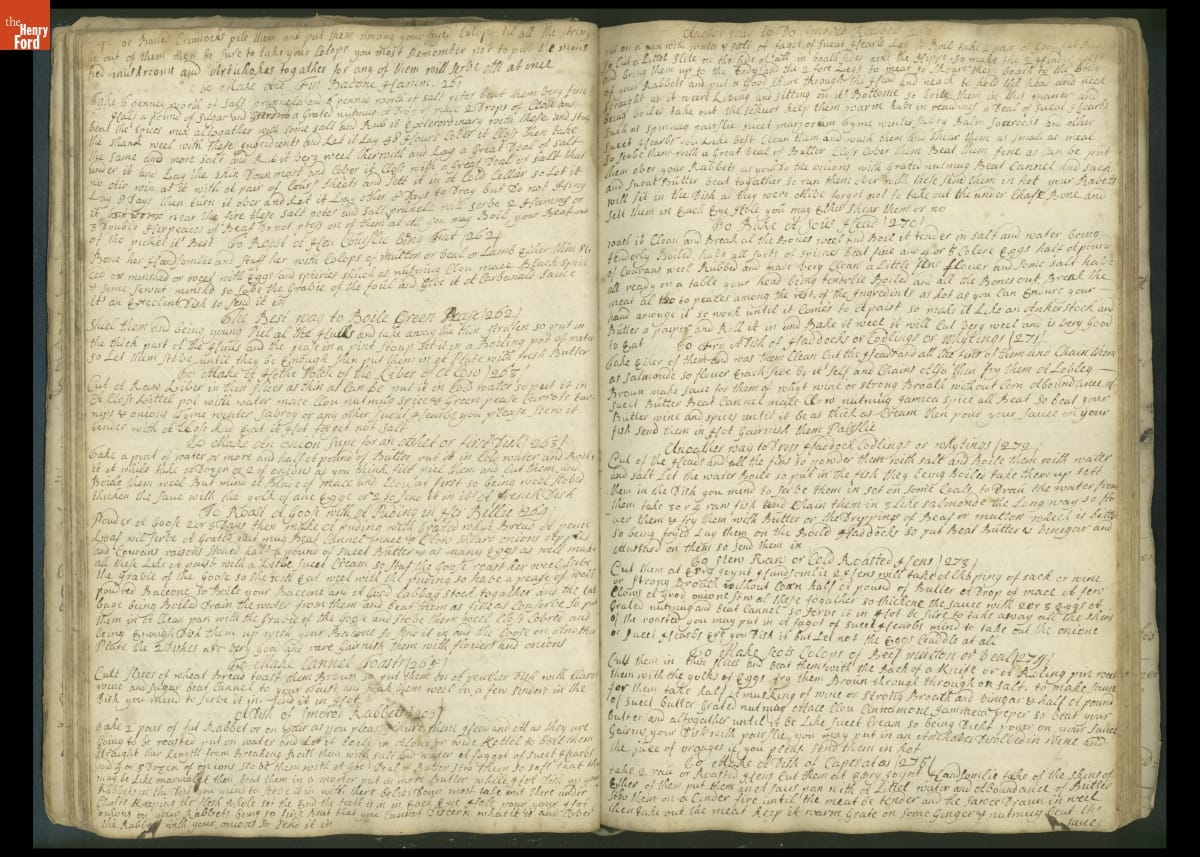 the
Henry
Ford
or Boiled Crumocks pele them and put them among your fryed Colops til all the string
be out of them then be sure to take your Colops you most Remember not to put the
mushrooms and Artichokes together for any of them will serve oth at once
To Make one fin Bacone Hamm. 261
Take 6 penney worth of Salt prunella and 2 pennie worth of salt peter beat them bery fine
Half a pound of sugar and a Grated nutmug 2 Drops of Clous and
beat the spices mix altogather with some salt and Rub it Exterordinary with these and stuf
the shank weel with these Ingredients and Let it Lay 48 Hours Cober it Clos then take
the same and more salt and Rub it bery weel therwith and Lay a Great Deal of salt
under it and Lay the skin Dounmost and Cober it Clos with a Great Deal of salt that
no air win at it with a pair of Cours sheets and sett it in a Cold Cellar so Let it
Lay 8 Days then turn it ober and Let it Lay other 8 Days to Dray but Do not Hing
it near the fire these salt peter and salt prunella will serbe 2 Hamms or
3 Double of Beaf Do not press on of them al
of the pickel it Best To Roast a Hen Conslie bing fatt (261)
Bone her Handsomlie and stuff her with Colops of mutton or beal or Lamb ether thine sli
ced or minshed or weel with Eggs and spiceries which as nutmug Clou mace Black spice
& some sewat minshd so sabe the Grabie of the foull and
its an Excellent Dish so send it in
The Best way to Boile Green Pease (262)
Shiel them and being young Piel all the Hulls and take away the thin strufen so put in
the thick part of the Hulls and the pease in a pint stoup set it in a Boiling pott of water
so Let them stobe untill they be Enough then put them in a Plate with fresh Butter
To Make a Hotch Potch of the Liber of a Cow (263)
Cut a Raw Liber in thin slices as thin as Can be put it in Cold water so put it in
a Clos Kittel pot with water mace Clou nutmug spice & Green pease Carrots tur
nips & onions Tyme winter sabroy or any other sweat Hearbs you please stew it
tender with a Clos lid Eat it Hot forget not salt
To Make an onion Supe for an othet or first Dish (263)
Take a pint of water or more and half a pound of Butter put it in Cold water and Boile
it a while take a Dozen or 2 of onions as you think fitt piel them and Cut them, you
Boile them weel But mind a Blade of mace and Clou at first so being weel stobed
thicken the sauce with the yolk of ane Egge or 2 so send it in its a french Dish
To Roast a Goose with a Puding in Her Bellie (264)
Pouder a Goose 2 or 3 Days then make a puding with Grated whyt Bread a penie
Loaf will serbe a Grated nutmug Beat Cannel mace & Clou sheard onions Apples
and Courans raisons stoned half a pound of suet Butter & as many Eggs as will mak
all these Like a paist with a Little sweet Cream so stuf the Goose roast her weel sabe
the Grabie of the Goose so she will Eat weel with the puding so habe a peace of weel
poudred Baccone so Boile your Baccone and a Good Cabbag stock together and the Cab
bage being Boiled Drain the water from them and beat them as fine as Conserbe so put
them in a Clean pan with the Grabie of the Goose and stobe them weel Clos Cobred and
being Enough Dish them up with your Bacone so send it in and the Goose on anothe
Plate the 2 Dishes are bery Good and rare Garnish them with flowers and onions
To Make Cannel Toasts (265)
Cutt slices of wheat Bread toast them Broun so put them on a peuther Dish with Claret
wine and sugar beat Cannel to your taist and soak them weel on a few sinders in the
Dish you mind to serbe it in send it in Hot
A Dish of Smored Rabbets (265)
Take 2 pair of fat Rabbet or on pair as you please and as they are
Going to be roasted put on water and Let it Boile in a Long or wide Kettel to boil them
straight ther Length from Breaking Boill them with salt and water a faggot of sweet Hearbs
and 1 or 2 Dozen of onions stobe them with a Good Deal of Butter stew them so soft that the
may be Like marmalet then beat them in a morter put in more Butter while Hot Dish up your
Rabbets in the Dish you mind to serbe it in with there belies Doun most take out there under
Chafts Keeping the flesh whole set the End the teeth is in in Each Eye Hole pour your Hot
onions on your Rabbets being so fine Beat that you Cannot Discern what it is and Cober
the Rabbets with your onions so send it in
Another way to Do Smored Rabbets 269
put on a pan with water & salt a fagot of sweat Hearbs Let it Boil take 2 pair of Rabbets
so Cut a Little slite in the side of all in boath sides next the Hipps so make the 2 Hinder Legs
and bring them up to the Body and the 2 fore Legs to meat so skiure them boath to the body
of your Rabbets and put a Good skiure through the Head and neck to hold the head and neck
straight as it weere Libing and sitting on its Bottome so boile them in this maner and
being boiled take out the skiurs keep them warm habe in readines a Deal of sweat Hearbs
such as spinnag parslie sweet marjorum Tyme winter sabry Balm sorrocks and other
sweet Hearbs you Like best Clean them and wash them and shear them as small as meal
so stobe them with a Great Deal of Butter Clos Cober them Beat them fine as Can be put
them ober your Rabbets as you Do the onions with Grated nutmug Beat Cannel and sack
and sweat Butter beat together so run them ober with these send them in Hot your Rabets
will sit in the Dish as they were alibe forget not to take out the under Chaft Bone and
sett them in Each Eye Hole you may Ether shear them or no
To Bake a Sous Head (270)
wash it Clean and Break al the Bones weel and Boil it tender in salt and water being
tenderly Boiled, habe all sorts of spices beat fine and 4 or 5 Eggs half a pound
of Courans weel Rubbed and made bery Clean a Little fine flouer and some salt habe
all ready on a table your head being tenderlie Boiled and all the Bones out Break the
meat al to peaces among the rest of the Ingredients as Hot as you Can Endure your
hand amongst it so work untill it Comes to a paist so make it Like an Ankerstock and
Butter a Paper and Roll it in and Bake it weel it will Cut bery weel and is bery Good
to Eat To fry A Dish of Haddocks or Codlings or Whytings (271)
Take Ether of them and was them Clean Cut the Heads and all the fins of them and Chain them
as salmonds so flower Each side by it Self and Chains also then fry them a Lobley
Broun make sauce for them of whyt wine or strong Broath without Corn aboundance of
sweit Butter Beat Cannel mace Clow nutmug Jamica spice all Beat so beat your
Butter wine and spices untill it be as thick as Cream then pour your sauce on your
fish send them in Hot Gairnish them Parslie
Anoather way to Dress Haddock Codlings or whytings (272
Cut of the Heads and all the fins so pouder them with salt and Boile them with water
and salt Let the water Boile so put in the fish they Being Boiled take them up sett
them in the Dish you mend to serbe them in set on some Coals to Drain the water from
them take 3 or 4 raw fish and Chain them in 3 Like salmonds the Long way so flo
uer them & fry them with Butter or the Drypings of Beaf or mutton which is bette
so being fryed Lay them on the Boild Haddocks so put Beat Butter & binegar and
Mustard on them so send them in
To Stew Raw or Cold Roasted Hens (273)
Cut them at Ebry joynt Handsomlie 2 Hens will take a Choping of sack or wine
or strong Brouth without Corn half a pound of Butter a Drop of mace a few
Clows a good onione stew all these together so thickene the sauce with 2 or 3 Eggs a
Grated nutmug and beat Cannel so serbe it in Hot be sure to take away all the skins
of the roasted you may put in a fagot of sweet Hearbs mind to take out the onione
or sweet Hearbs Ere you Dish it but Let not the Eggs Cruddle at all
To Make Scots Colops of Beef mutton or beal (274)
Cutt them in thin slices and beat them with the Back of a Knife or a Roling pin weet
them with the yolks of Eggs fry them Broun through & through on salt. to make sauce
for them take half a mutsking of wine or strong Broath and binegar & half a pound
of sweet butter Grated nutmug Mace Clou Cinnamont Jammica peper so beat your
butter and altogether untill it be Like sweet Cream so being Disht pouer on your sauce
Gairnis your Dish with parslie you may put in an Anchabee Disolbed in wine and
the juce of oranges if you pleas send them in hot
To Make a Dish of Caperatas (275)
Take 2 raw or Roasted Hens Cut them at ebry joynt Handsomlie take of the skins of
Either of them put them in a saus pan with a Littel water and aboundance of Butter
stew them on a Cinder fire untill the meat be tender and the sauce Draun in weel
then take out the meat Keep it warm Grate on some Ginger & nutmug beat the
sauce